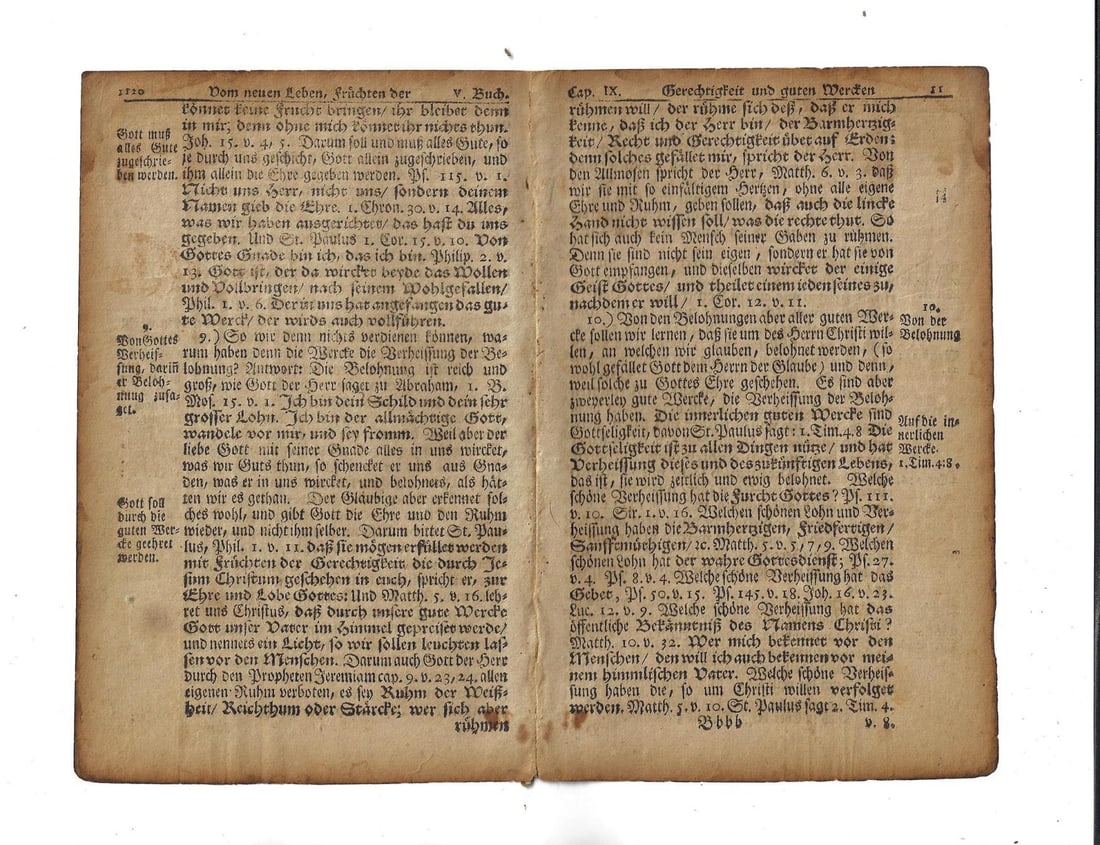 1120 Vom neuen Leben, Früchten der V. Buch.
könnet keine Frucht bringen/ ihr bleibet denn
in mir; denn ohne mich könnet ihr nichts thun.
Gott muß
alles Gute
zugeschrie-
ben werden.
Joh. 15. v. 4, 5. Darum soll und muß alles Gute, so
je durch uns geschicht, Gott allein zugeschrieben, und
ihm allein die Ehre gegeben werden. Ps. 115. v. 1.
Nicht uns Herr, nicht uns/ sondern deinem
Namen gieb die Ehre. 1. Chron. 30. v. 14. Alles,
was wir haben ausgerichtet/ das hast du uns
gegeben. Und St. Paulus 1. Cor. 15. v. 10. Von
Gottes Gnade bin ich, das ich bin. Philip. 2. v.
13. Gott ist, der da wircket beyde das Wollen
und Vollbringen/ nach seinem Wohlgefallen/
Phil. 1. v. 6. Der in uns hat angefangen das gu-
te Werck/ der wirds auch vollführen.
9.
Von Gottes
Verheis-
sung, darin
er Beloh-
nung zusa-
get.
9.) So wir denn nichts verdienen können, wa-
rum haben denn die Wercke die Verheissung der Be-
lohnung? Antwort: Die Belohnung ist reich und
groß, wie Gott der Herr saget zu Abraham, 1. B.
Mos. 15. v. 1. Ich bin dein Schild und dein sehr
grosser Lohn. Ich bin der allmächtige Gott,
wandele vor mir, und sey fromm. Weil aber der
liebe Gott mit seiner Gnade alles in uns wircket,
was wir Guts thun, so schencket er uns aus Gna-
den, was er in uns wircket, und belohnets, als hät-
ten wir es gethan. Der Gläubige aber erkennet sol-
ches wohl, und gibt Gott die Ehre und den Ruhm
Gott soll
durch die
guten Wer-
cke geehret
werden.
wieder, und nicht ihm selber. Darum bittet St. Pau-
lus, Phil. 1. v. 11. daß sie mögen erfüllet werden
mit Früchten der Gerechtigkeit die durch Je-
sum Christum geschehen in euch, spricht er, zur
Ehre und Lobe Gottes: Und Matth. 5. v. 16. leh-
ret uns Christus, daß durch unsere gute Wercke
Gott unser Vater im Himmel gepreiset werde/
und nennets ein Licht, so wir sollen leuchten las-
sen vor den Menschen. Darum auch Gott der Herr
durch den Propheten Jeremiam cap. 9. v. 23, 24. allen
eigenen Ruhm verboten, es sey Ruhm der Weiß-
heit/ Reichthum oder Stärcke; wer sich aber
rühmen
Cap. IX. Gerechtigkeit und guten Wercken 11
rühmen will/ der rühme sich deß, daß er mich
kenne, daß ich der Herr bin/ der Barmhertzig-
keit/ Recht und Gerechtigkeit übet auf Erden:
denn solches gefället mir, spricht der Herr. Von
den Allmosen spricht der Herr, Matth. 6. v. 3. daß
wir sie mit so einfältigem Hertzen, ohne alle eigene
Ehre und Ruhm, geben sollen, daß auch die lincke
Hand nicht wissen soll/ was die rechte thut. So
hat sich auch kein Mensch seiner Gaben zu rühmen.
Denn sie sind nicht sein eigen, sondern er hat sie von
Gott empfangen, und dieselben wircket der einige
Geist Gottes/ und theilet einem ieden seines zu,
nachdem er will/ 1. Cor. 12. v. 11.
10.
Von der
Belohnung
10.) Von den Belohnungen aber aller guten Wer-
cke sollen wir lernen, daß sie um des Herrn Christi wil-
len, an welchen wir glauben, belohnet werden, (so
wohl gefället Gott dem Herrn der Glaube) und denn,
weil solche zu Gottes Ehre geschehen. Es sind aber
zweyerley gute Wercke, die Verheissung der Beloh-
nung haben. Die innerlichen guten Wercke sind
Auf die in-
nerlichen
Wercke.
1. Tim. 4:8.
Gottseligkeit, davon St. Paulus sagt: 1. Tim. 4.8 Die
Gottseligkeit ist zu allen Dingen nütze/ und hat
Verheissung dieses und des zukünftigen Lebens,
das ist, sie wird zeitlich und ewig belohnet. Welche
schöne Verheissung hat die Furcht Gottes? Ps. 111.
v. 10. Sir. 1. v. 16. Welchen schönen Lohn und Ver-
heissung haben die Barmhertzigen, Friedfertigen/
Sanfftmüthigen/ ꝛc. Matth. 5. v. 5, 7, 9. Welchen
schönen Lohn hat der wahre Gottesdienst; Ps. 27.
v. 4. Ps. 8. v. 4. Welche schöne Verheissung hat das
Gebet, Ps. 50. v. 15. Ps. 145. v. 18. Joh. 16. v. 23.
Luc. 12. v. 9. Welche schöne Verheissung hat das
öffentliche Bekänntniß des Namens Christi?
Matth. 10. v. 32. Wer mich bekennet vor den
Menschen/ den will ich auch bekennen vor mei-
nem himmlischen Vater. Welche schöne Verheis-
sung haben die, so um Christi willen verfolget
werden. Matth. 5. v. 10. St. Paulus sagt 2. Tim. 4.
Bbbb v. 8.